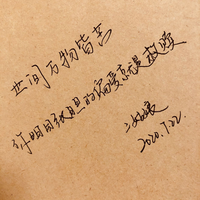 世间万物皆苦
你明目张胆的偏爱就是救赎
2020.7.22.